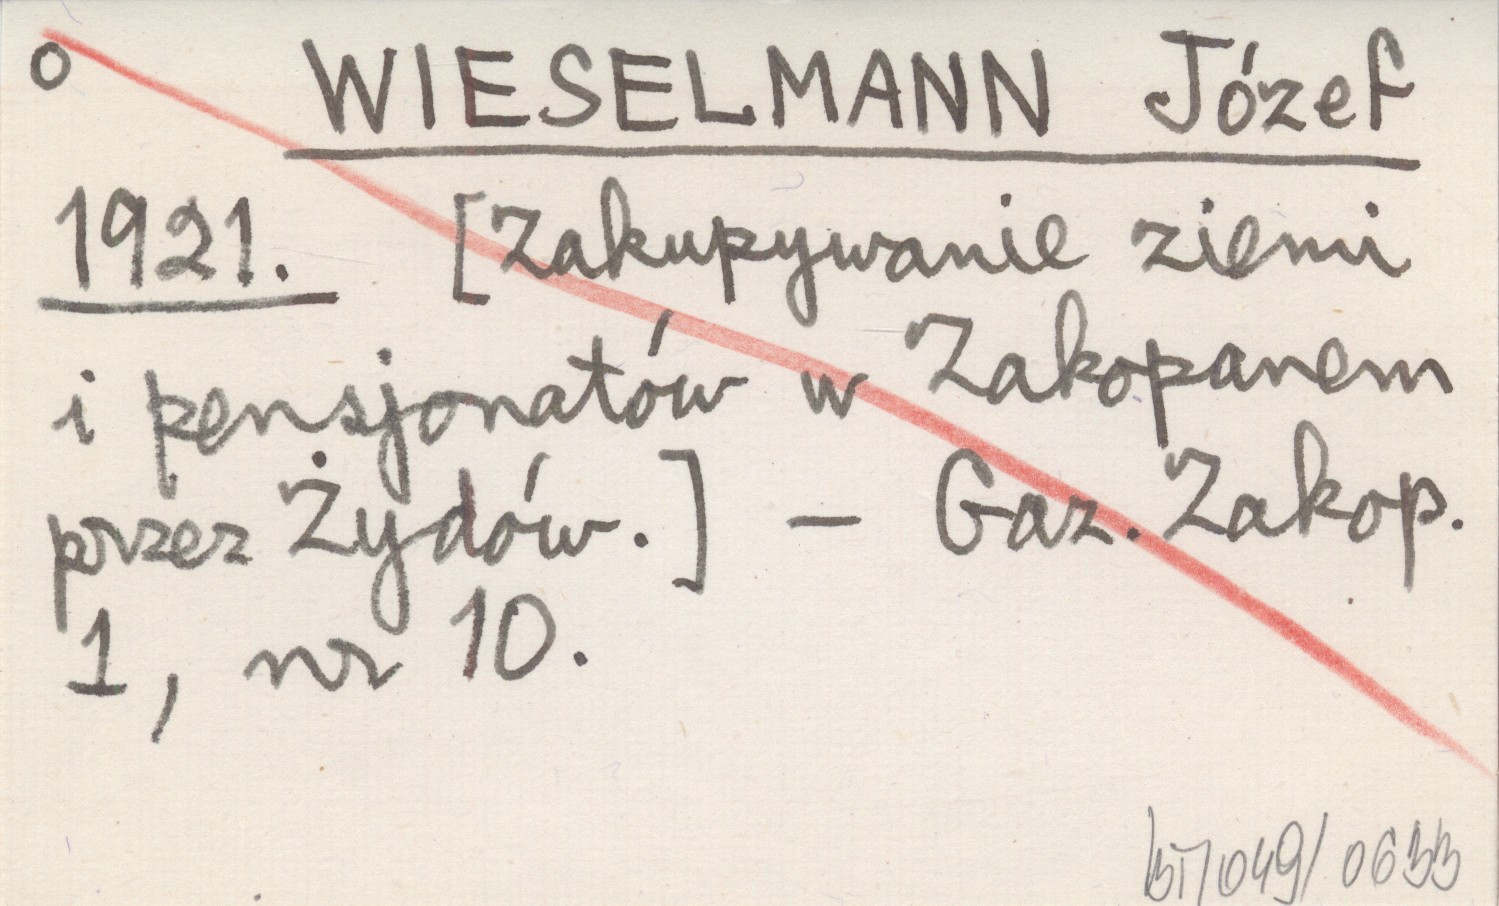 o WIESELMANN Józef
1921. [Zakupywanie ziemi
i pensjonatów w Zakopanem
przez Żydów.] – Gaz. Zakop.
1, nr 10.
BT/049/0633